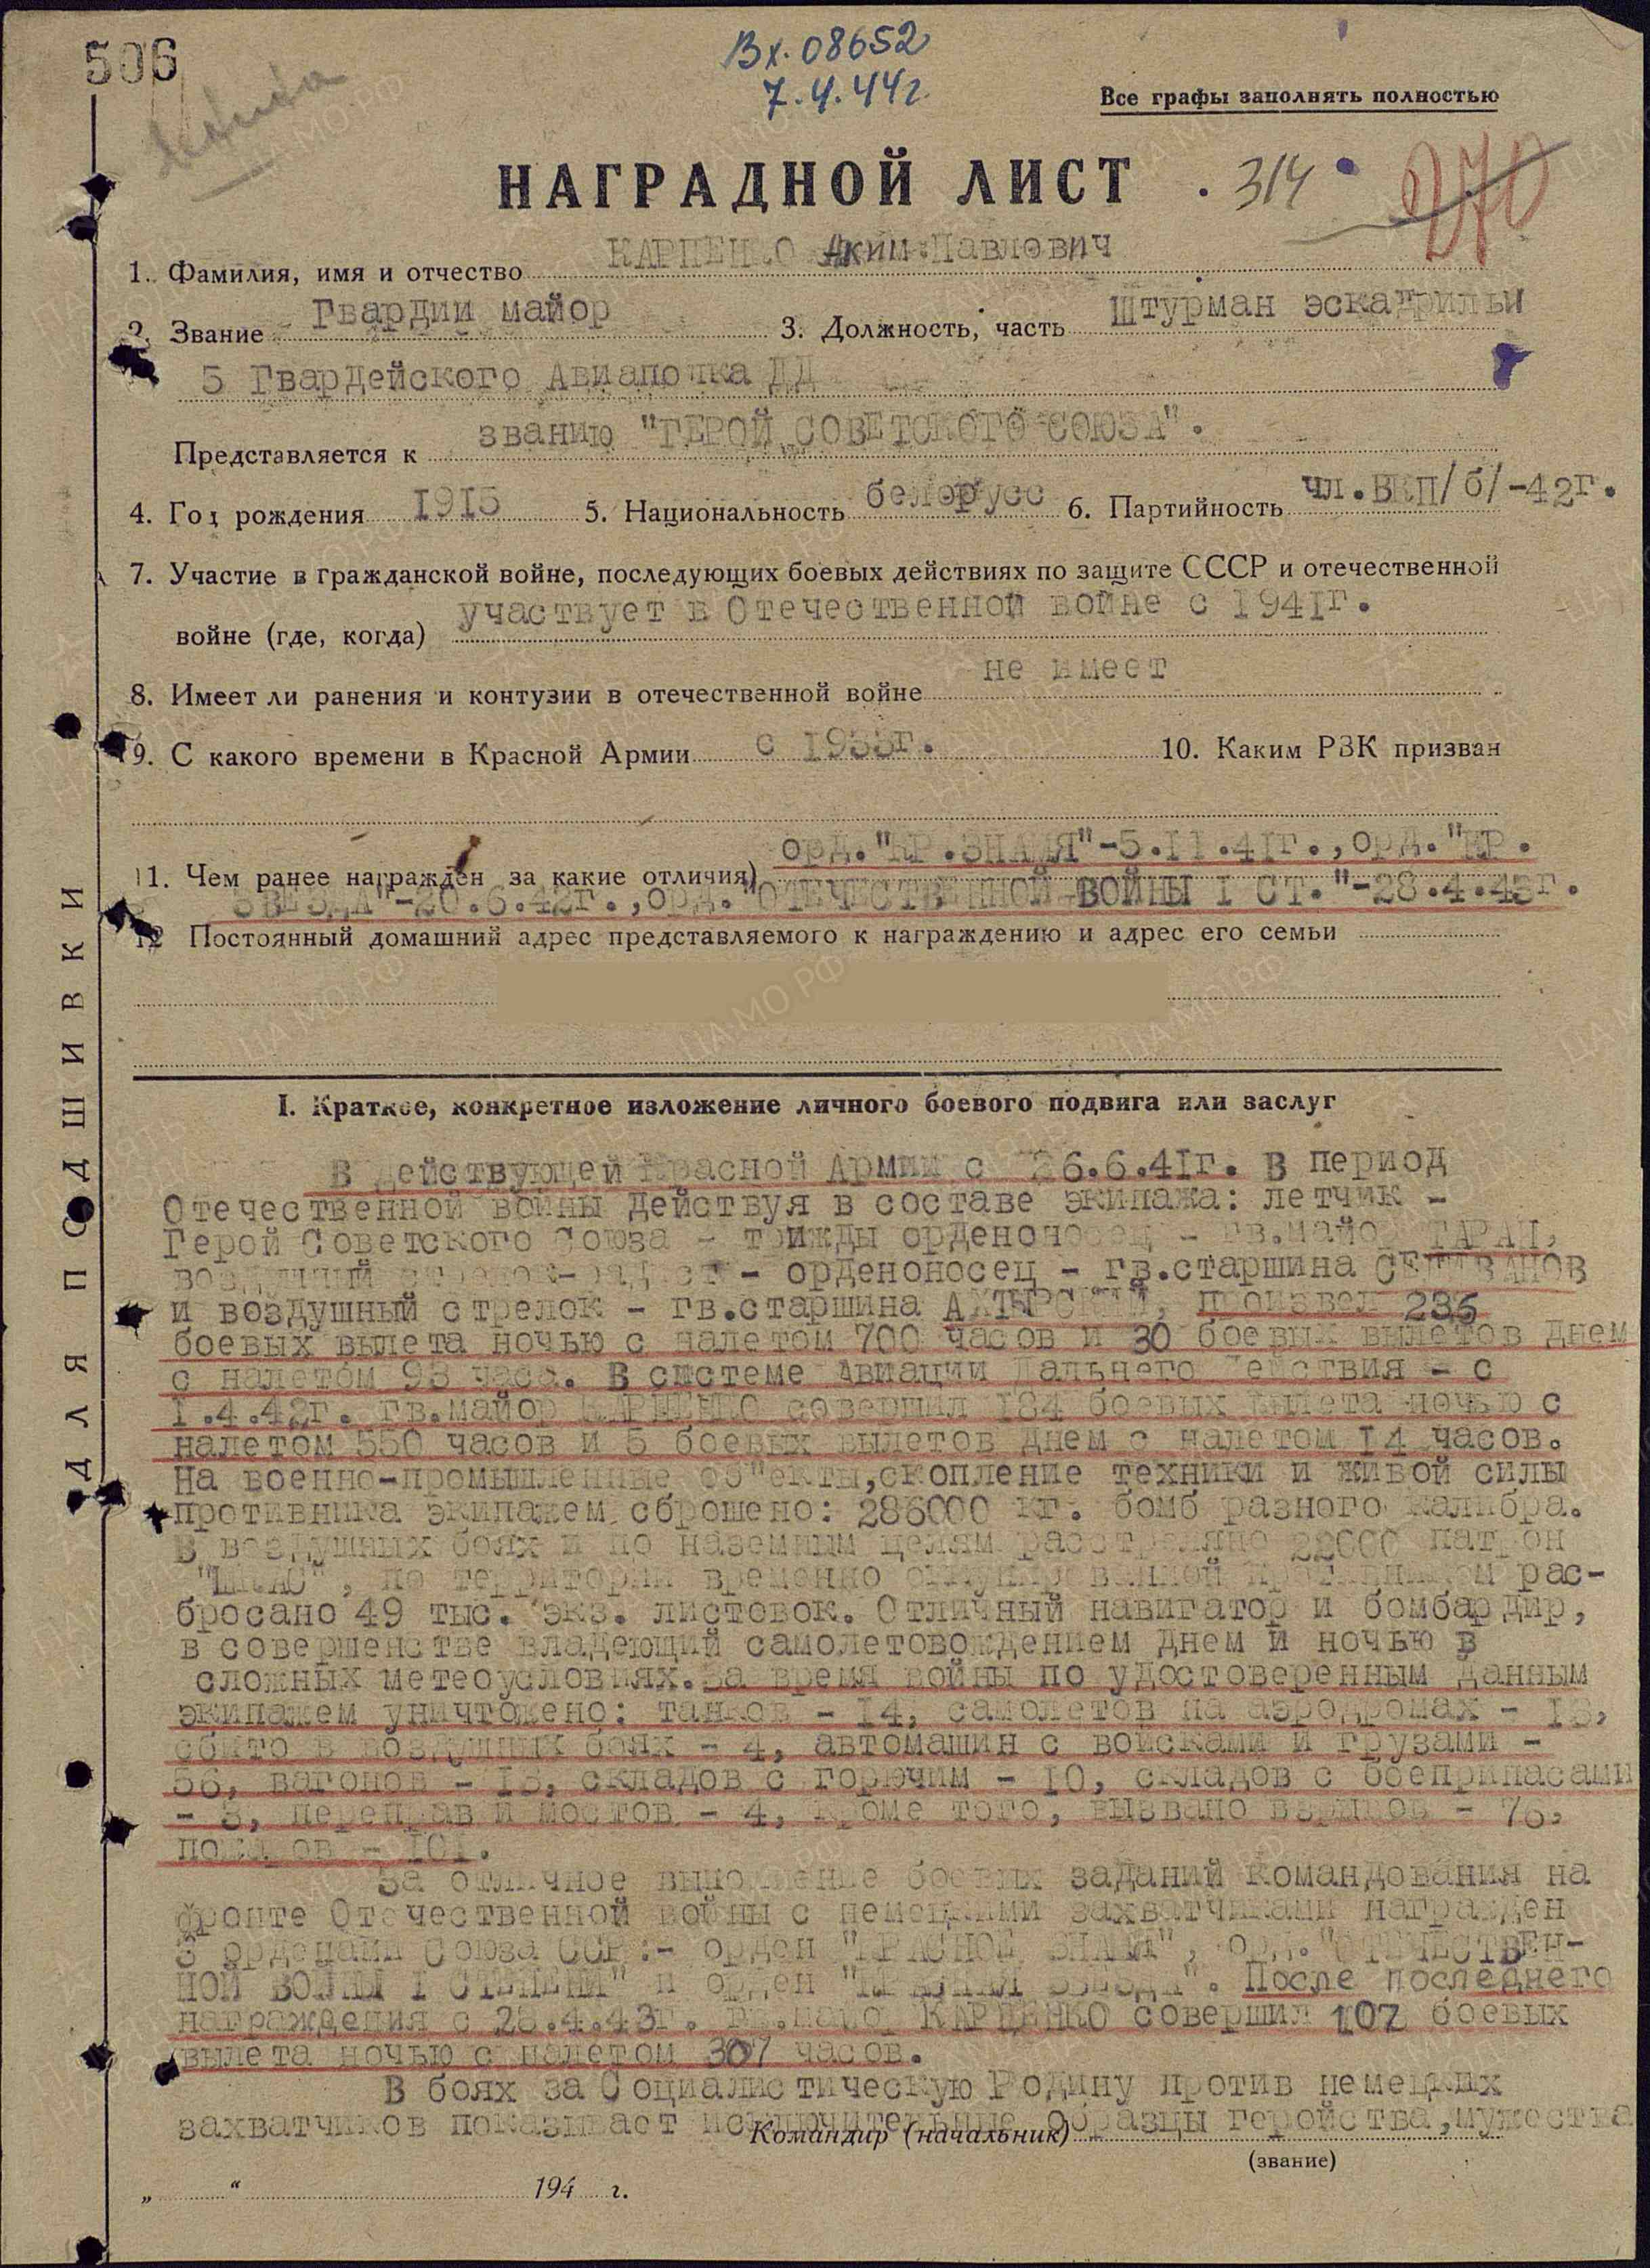 506
Вх. 08652
7.4.44г.
Все графы заполнять полностью
НАГРАДНОЙ ЛИСТ . 314 270
1. Фамилия, имя и отчество КАРПЕНКО Аким Павлович
2. Звание Гвардии майор 3. Должность, часть Штурман эскадрильи
5 Гвардейского Авиаполка ДД
Представляется к званию "ГЕРОЙ СОВЕТСКОГО СОЮЗА".
4. Год рождения 1915 5. Национальность белорусс 6. Партийность чл.ВКП/б/-42г.
7. Участие в гражданской войне, последующих боевых действиях по защите СССР и отечественной
войне (где, когда) участвует в Отечественной войне с 1941г.
8. Имеет ли ранения и контузии в отечественной войне не имеет
9. С какого времени в Красной Армии с 1933г. 10. Каким РВК призван
11. Чем ранее награжден за какие отличия) орд."КР.ЗНАМЯ"-5.11.41г.,орд."КР.
ЗВЕЗДА"-20.6.42г.,орд."ОТЕЧЕСТВЕННОЙ ВОЙНЫ I СТ."-28.4.43г.
12 Постоянный домашний адрес представляемого к награждению и адрес его семьи
ДЛЯ ПОДШИВКИ
I. Краткое, конкретное изложение личного боевого подвига или заслуг
В действующей Красной Армии с 26.6.41г. В период
Отечественной войны действуя в составе экипажа: летчик -
Герой Советского Союза - трижды орденоносец - гв.майор ТАРАН,
воздушный стрелок-радист - орденоносец - гв.старшина СЕЛИВАНОВ
и воздушный стрелок - гв.старшина АХТЫРСКИЙ, произвел 235
боевых вылета ночью с налетом 700 часов и 30 боевых вылетов днем
с налетом 93 часа. В системе Авиации Дальнего Действия - с
1.4.42г. гв.майор КАРПЕНКО совершил 184 боевых вылета ночью с
налетом 550 часов и 5 боевых вылетов днем с налетом 14 часов.
На военно-промышленные об"екты,скопление техники и живой силы
противника экипажем сброшено: 286000 кг. бомб разного калибра.
В воздушных боях и по наземным целям расстреляно 22000 патрон
"ШКАС", по территории временно оккупированной противником рас-
бросано 49 тыс. экз. листовок. Отличный навигатор и бомбардир,
в совершенстве владеющий самолетовождением днем и ночью в
сложных метеоусловиях.За время войны по удостоверенным данным
экипажем уничтожено: танков - 14, самолетов на аэродромах -
сбито в воздушных боях - 4, автомашин с войсками и грузами -
56, вагонов - 13, складов с горючим - 10, складов с боеприпасами
- 3, переправ и мостов - 4, кроме того, вызвано взрывов - 76,
пожаров - 101.
За отличное выполнение боевых заданий командования на
фронте Отечественной войны с немецкими захватчиками награжден
3 орденами Союза ССР:- орден "КРАСНОЕ ЗНАМЯ", орд."ОТЕЧЕСТВЕН-
НОЙ ВОЙНЫ I СТЕПЕНИ" и орден "КРАСНАЯ ЗВЕЗДА". После последнего
награждения с 28.4.43г. гв.майор КАРПЕНКО совершил 102 боевых
вылета ночью с налетом 307 часов.
В боях за Социалистическую Родину против немецких
захватчиков показывает исключительные образцы геройства,мужества
Командир (начальник)
(звание)
„ “ 194 г.